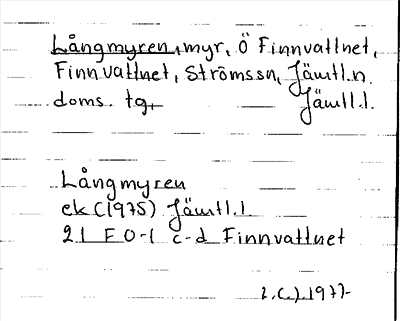 Långmyren, myr, Ö Finnvattnet,
Finnvattnet, Strömssn, Jämtl.n.
doms. tg, Jämtl.l.
Långmyren
ek (1975) Jämtl.l
21 F 0-1 c-d Finnvattnet
1977